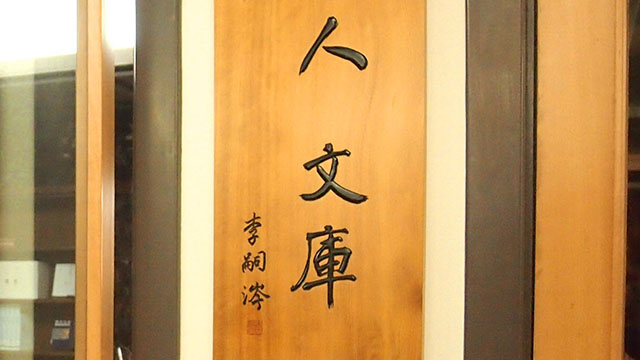 人文庫
李嗣涔